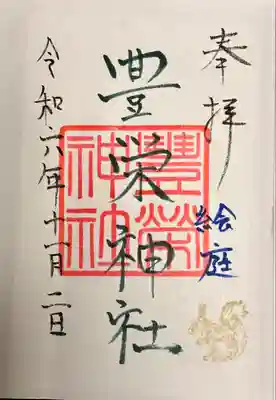 奉拝
絵庭
豊榮神社
豊榮神社
令和六年十一月二日